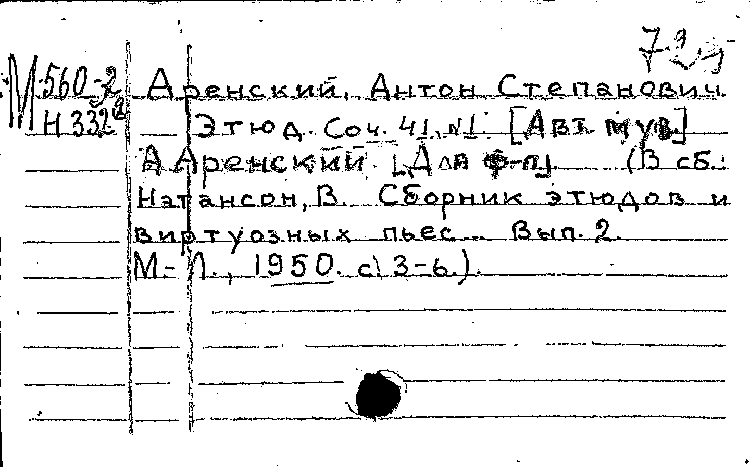 М 560-2 Аренский, Антон Степанович.
Н 332 Этюд. Соч. 41, №1. [Авт. муз.]
А Аренский. [Для ф-п.] (В сб.:
Натансон, В. Сборник этюдов и
виртуозных пьес... Вып. 2.
М.-Л., 1950. с. 3-6.).